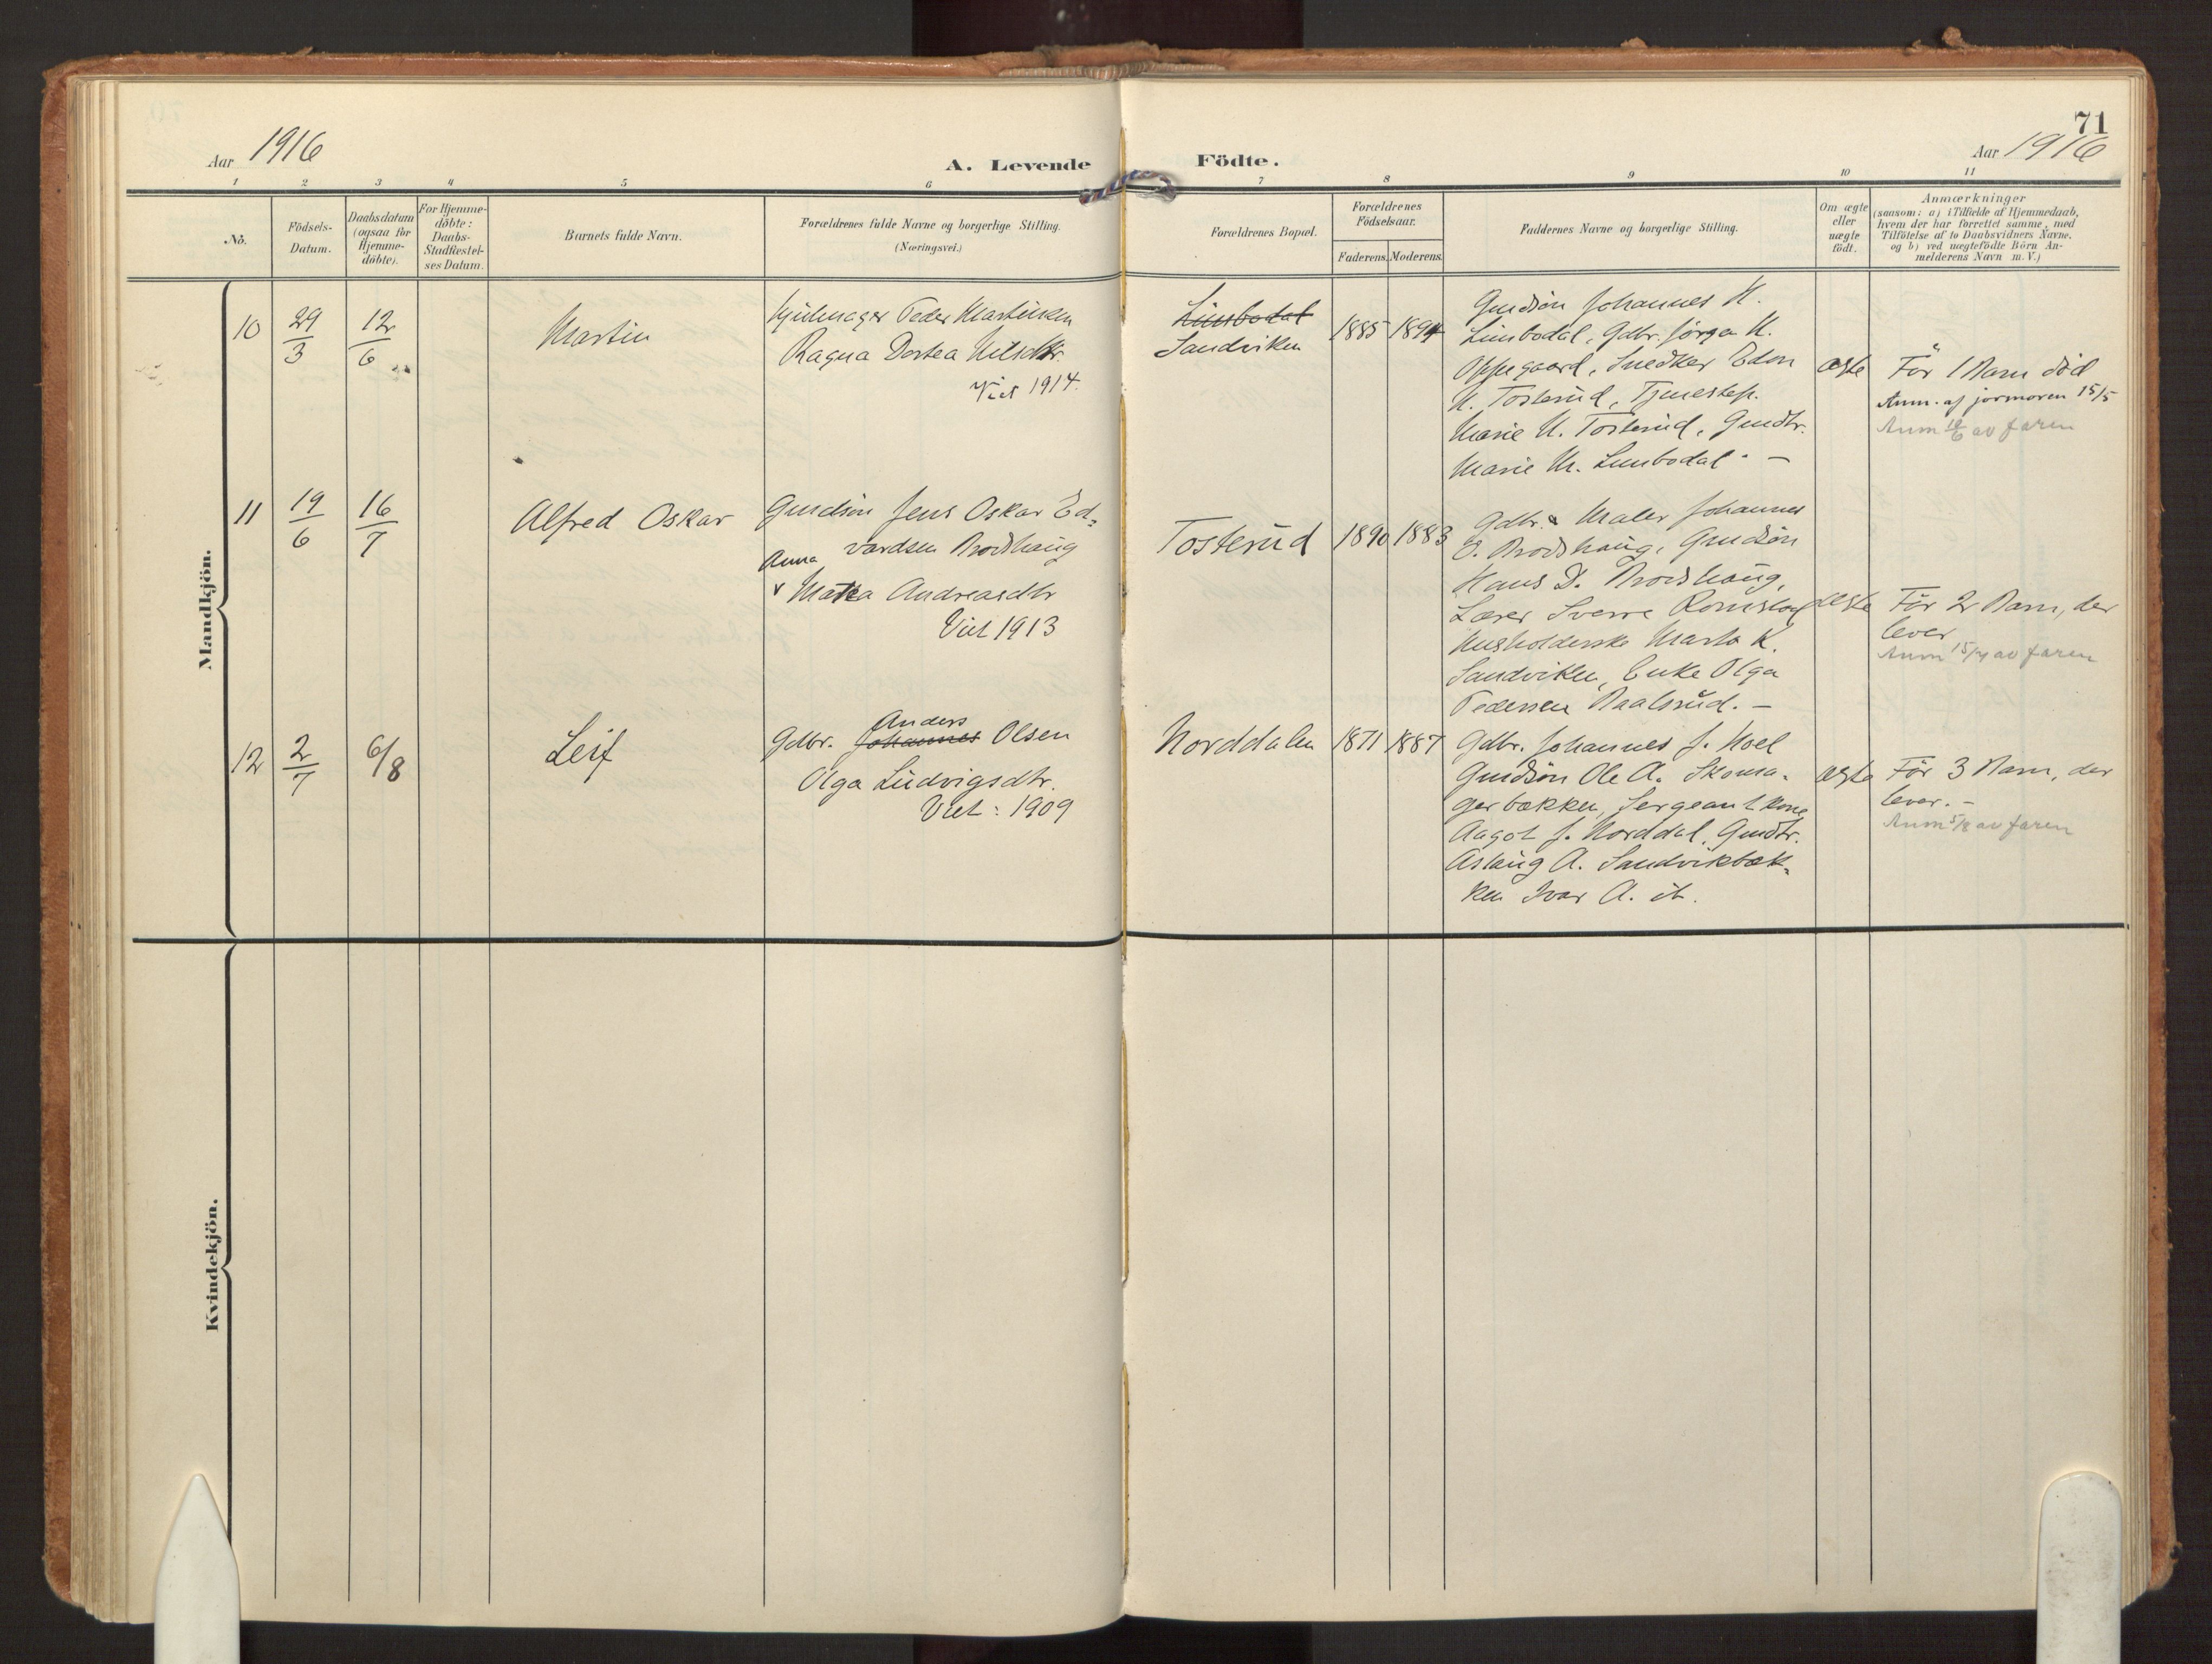 71
Aar 1916
A. Levende Födte.
Aar 1916
1 2 3 4 5 6 7 8 9 10 11
No.
Födsels-
Datum.
Daabsdatum
(ogsaa for
Hjemme-
döbte).
For Hjemme-
döbte:
Daabs-
Stadfæstel-
ses Datum.
Barnets fulde Navn.
Forældrenes fulde Navne og borgerlige Stilling.
(Næringsvei.)
Forældrenes Bopæl.
Forældrenes
Födselsaar.
Faderens. Moderens.
Faddernes Navne og borgerlige Stilling.
Om ægte
eller
uægte
födt.
Anmærkninger
(saasom: a) i Tilfælde af Hjemmedaab,
hvem der har forrettet samme, med
Tilföielse af to Daabsvidners Navne.
og b) ved uegtefödte Börn An-
melderens Navn m. V.)
Mandkjön.
10
29/3
12/6
Martin
Hjulmager Peder Martinsen
Ragna Dortea Nilsdtr.
Viet 1914.
Limbodal
Sandviken
1885 1894
Gmdsön Johannes H.
Limbodal, Gdbr. Jörgen H.
Oppegaard, Snedker Edon
H. Tosterud, Tjenestep.
Marie H. Tosterud, Gmdtr.
Marie M. Limbodal. —
ægte
För 1 Barn död
Anm. af jormoren 15/5
Anm 10/6 av faren
11
19/6
16/7
Alfred Oskar
Gmdsön Jens Oskar Ed-
vardsen Brodshaug
Anna
v Matea Andreasdtr
Viet 1913
Tosterud
1890 1883
Gdbr. & Maler Johannes
E. Brodshaug, Gmdsön
Hans D. Brodshaug,
Lærer Sverre Romstad
Husholderske Marta K.
Sandviken, Enke Olga
Pedersen Raalsrud. —
ægte
För 2 Barn, der
lever
Anm 15/7 av faren
12
2/7
6/8
Leif
Anders
Gdbr. Johannes Olsen
Olga Ludvigsdtr.
Viet: 1909
Norddalen
1871 1887
Gdbr. Johannes J. Hoel
Gmdsön Ole A. Skoma-
gerbækken, Sergeant kone
Aagot J. Norddal, Gmdtr.
Aslaug A. Sandvikbæk-
ken Ivar A. ib.
ægte
För 3 Barn, der
lever. —
Anm 5/8 av faren
Kvindekjön.